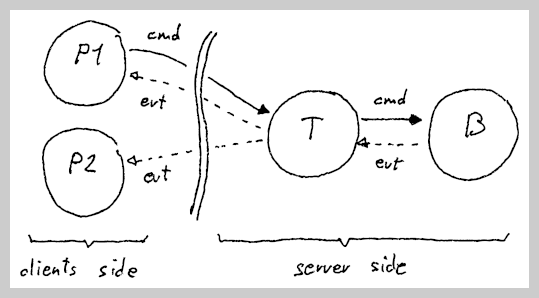 P1
cmd
evt
P2
evt
T
cmd
evt
B
clients side
server side